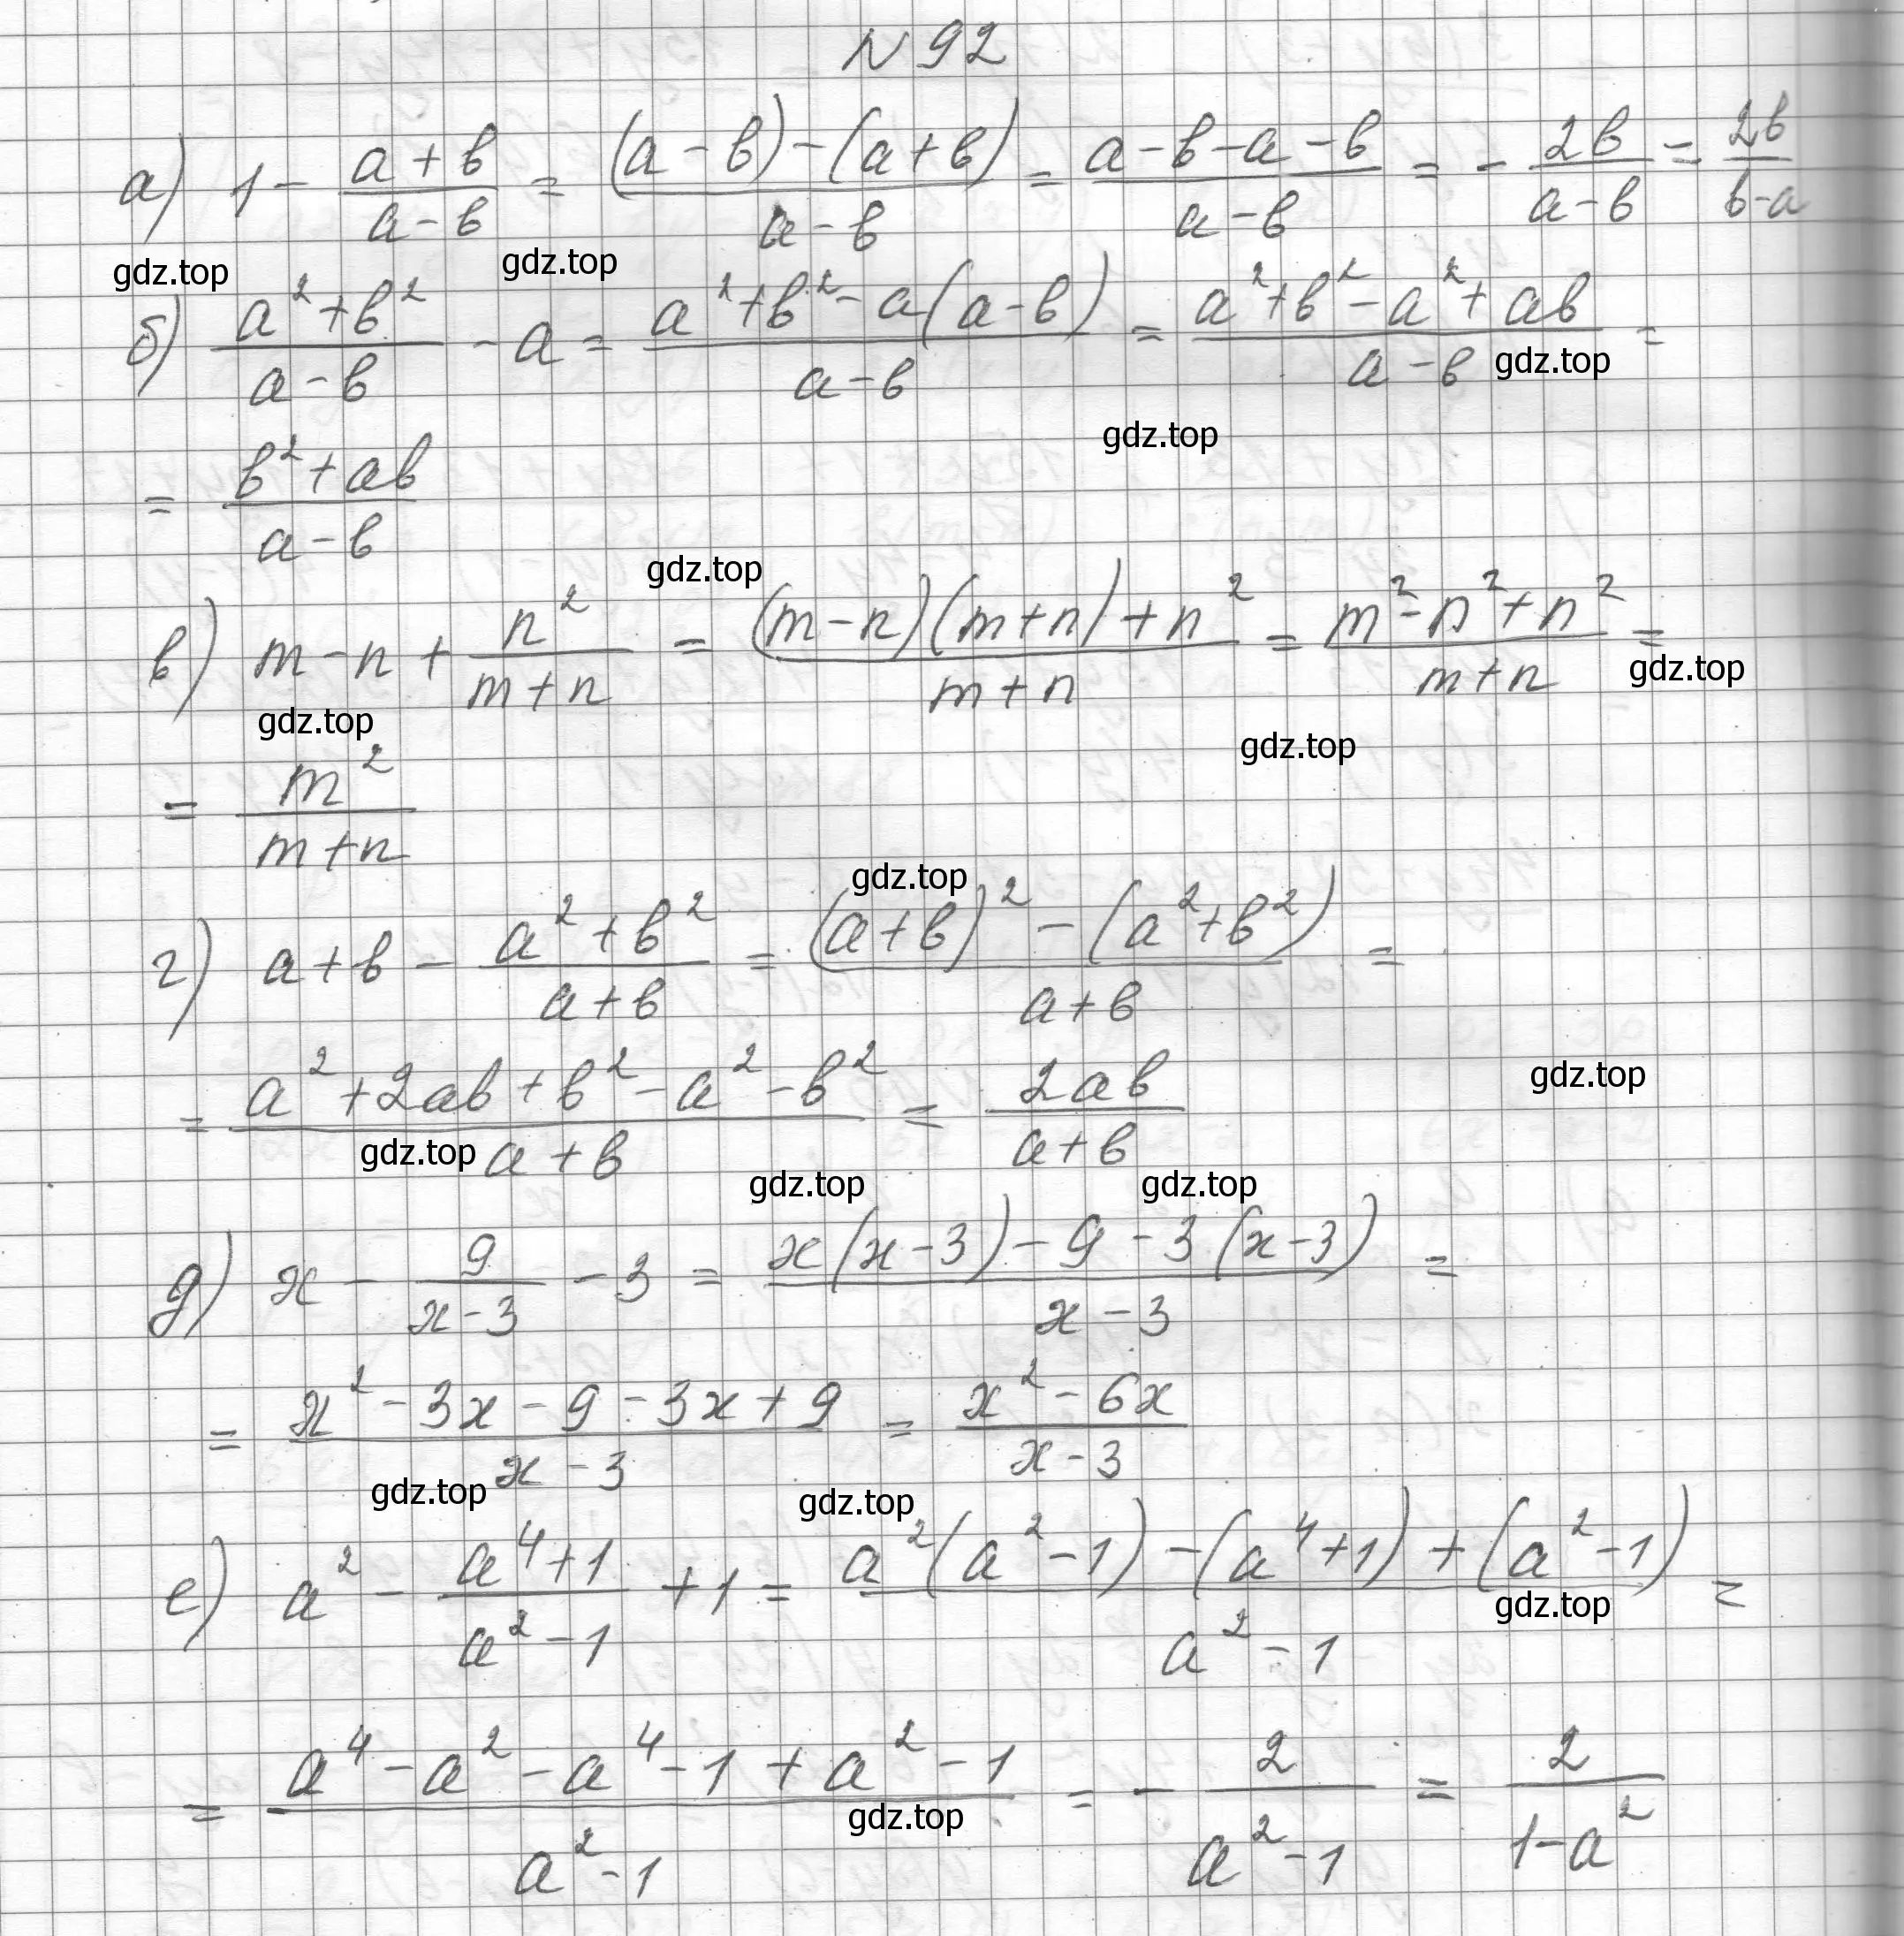 N 92
а) 1 - (a+b)/(a-b) = ((a-b)-(a+b))/(a-b) = (a-b-a-b)/(a-b) = - 2b/(a-b) = 2b/(b-a)
gdz.top gdz.top
б) (a²+b²)/(a-b) - a = (a²+b²-a(a-b))/(a-b) = (a²+b²-a²+ab)/(a-b) =
gdz.top
gdz.top
= (b²+ab)/(a-b)
gdz.top
в) m-n + n²/(m+n) = ((m-n)(m+n)+n²)/(m+n) = (m²-n²+n²)/(m+n) =
gdz.top
gdz.top
gdz.top
= m²/(m+n)
gdz.top
г) a+b - (a²+b²)/(a+b) = ((a+b)²-(a²+b²))/(a+b) =
gdz.top
= (a²+2ab+b²-a²-b²)/(a+b) = 2ab/(a+b)
gdz.top
gdz.top gdz.top
д) x - 9/(x-3) - 3 = (x(x-3)-9-3(x-3))/(x-3) =
= (x²-3x-9-3x+9)/(x-3) = (x²-6x)/(x-3)
gdz.top gdz.top
е) a² - (a⁴+1)/(a²-1) + 1 = (a²(a²-1)-(a⁴+1)+(a²-1))/(a²-1) =
gdz.top
= (a⁴-a²-a⁴-1+a²-1)/(a²-1) = - 2/(a²-1) = 2/(1-a²)
gdz.top